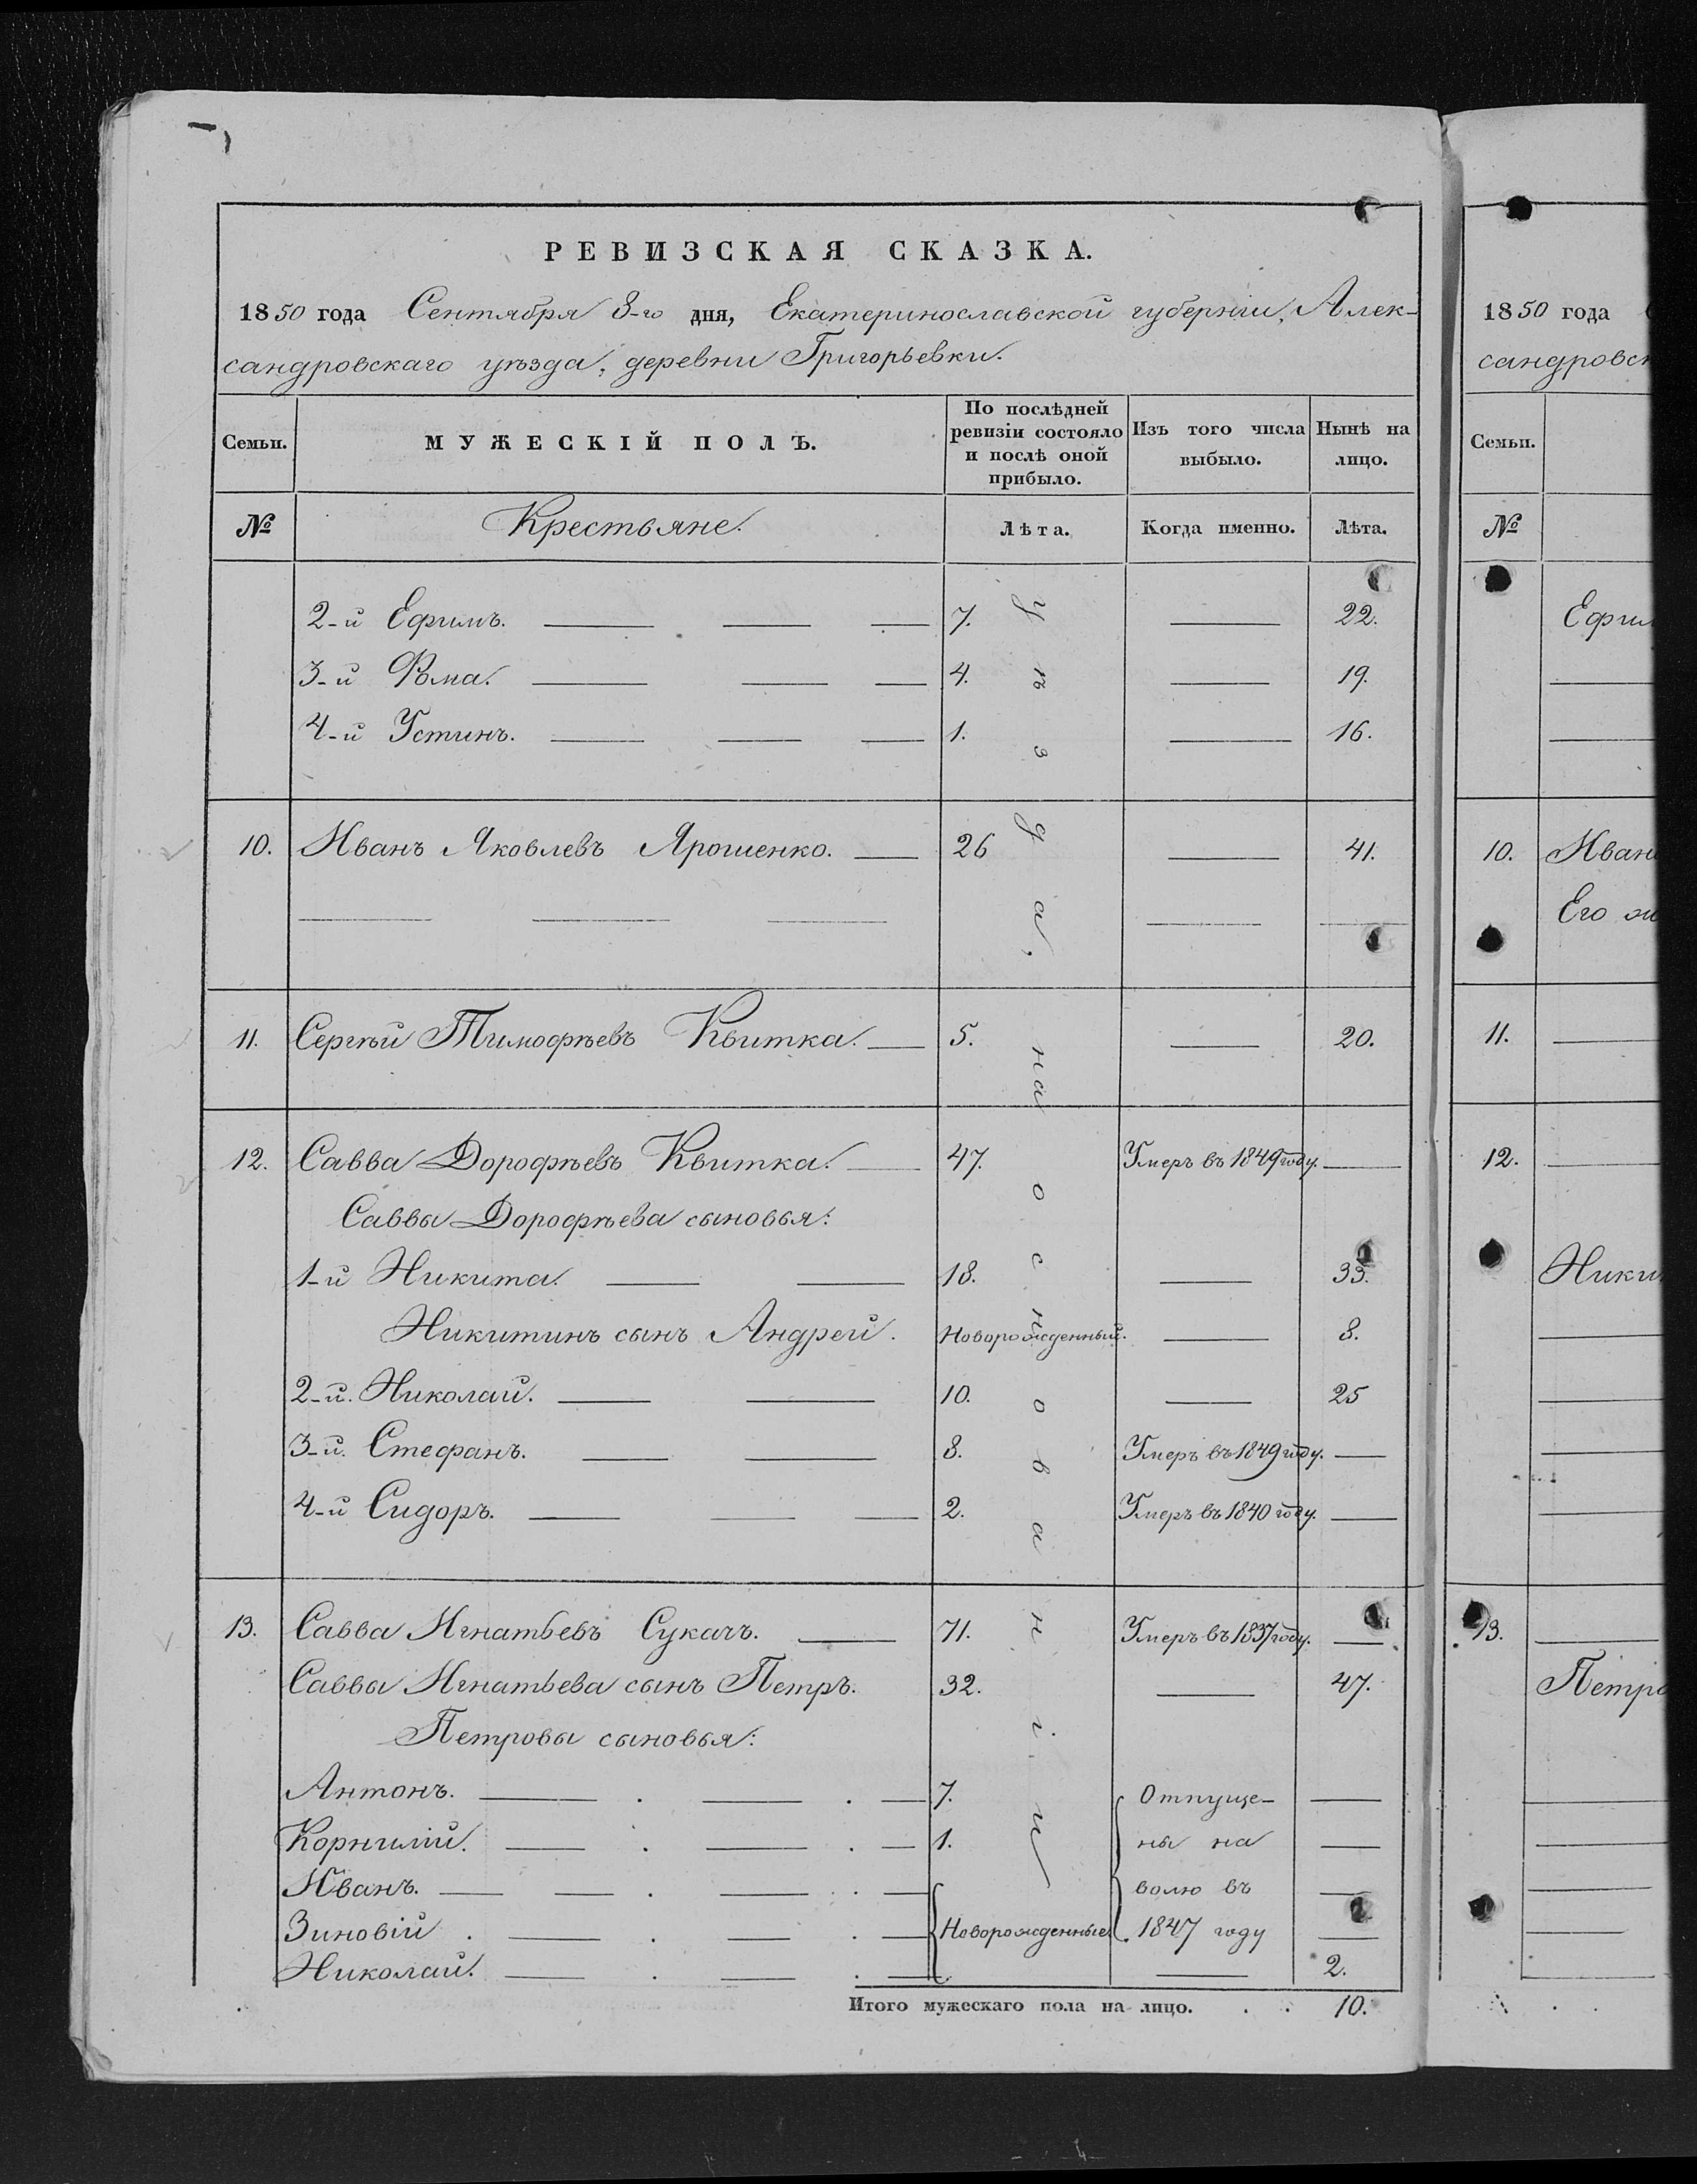 РЕВИЗСКАЯ СКАЗКА.
1850 года Сентября 8-го дня, Екатеринославской губерніи, Алек-
сандровскаго уѣзда, деревни Григорьевки.
Семьи. МУЖЕСКІЙ ПОЛЪ. По послѣдней ревизіи состояло и послѣ оной прибыло. Изъ того числа выбыло. Нынѣ на лицо.
№ Крестьяне. Лѣта. Когда именно. Лѣта.
2-й Ефимъ. 7. 22.
3-й Ѳома. 4. 19.
4-й Устинъ. 1. 16.
10. Иванъ Яковлевъ Ярошенко. 26 41.
11. Сергѣй Тимофѣевъ Квитка. 5. 20.
12. Савва Дорофѣевъ Квитка. 47. Умеръ въ 1849 году.
Саввы Дорофѣева сыновья:
1-й Никита. 18. 33.
Никитинъ сынъ Андрей. Новорожденный. 8.
2-й. Николай. 10. 25
3-й. Стефанъ. 8. Умеръ въ 1849 году.
4-й Сидоръ. 2. Умеръ въ 1840 году.
13. Савва Игнатьевъ Сукачъ. 71. Умеръ въ 1837 году.
Саввы Игнатьева сынъ Петръ. 32. 47.
Петровы сыновья:
Антонъ. 7. Отпуще-
Корнилій. 1. ны на
Иванъ. волю въ
Зиновій Новорожденные. 1847 году
Николай. 2.
Итого мужескаго пола на лицо. 10.
уѣзда, на основаніи
1850 года
сандровск
Семьи.
№
Ефим
10. Иван
Его ж
11.
12.
Ники
13.
Петро